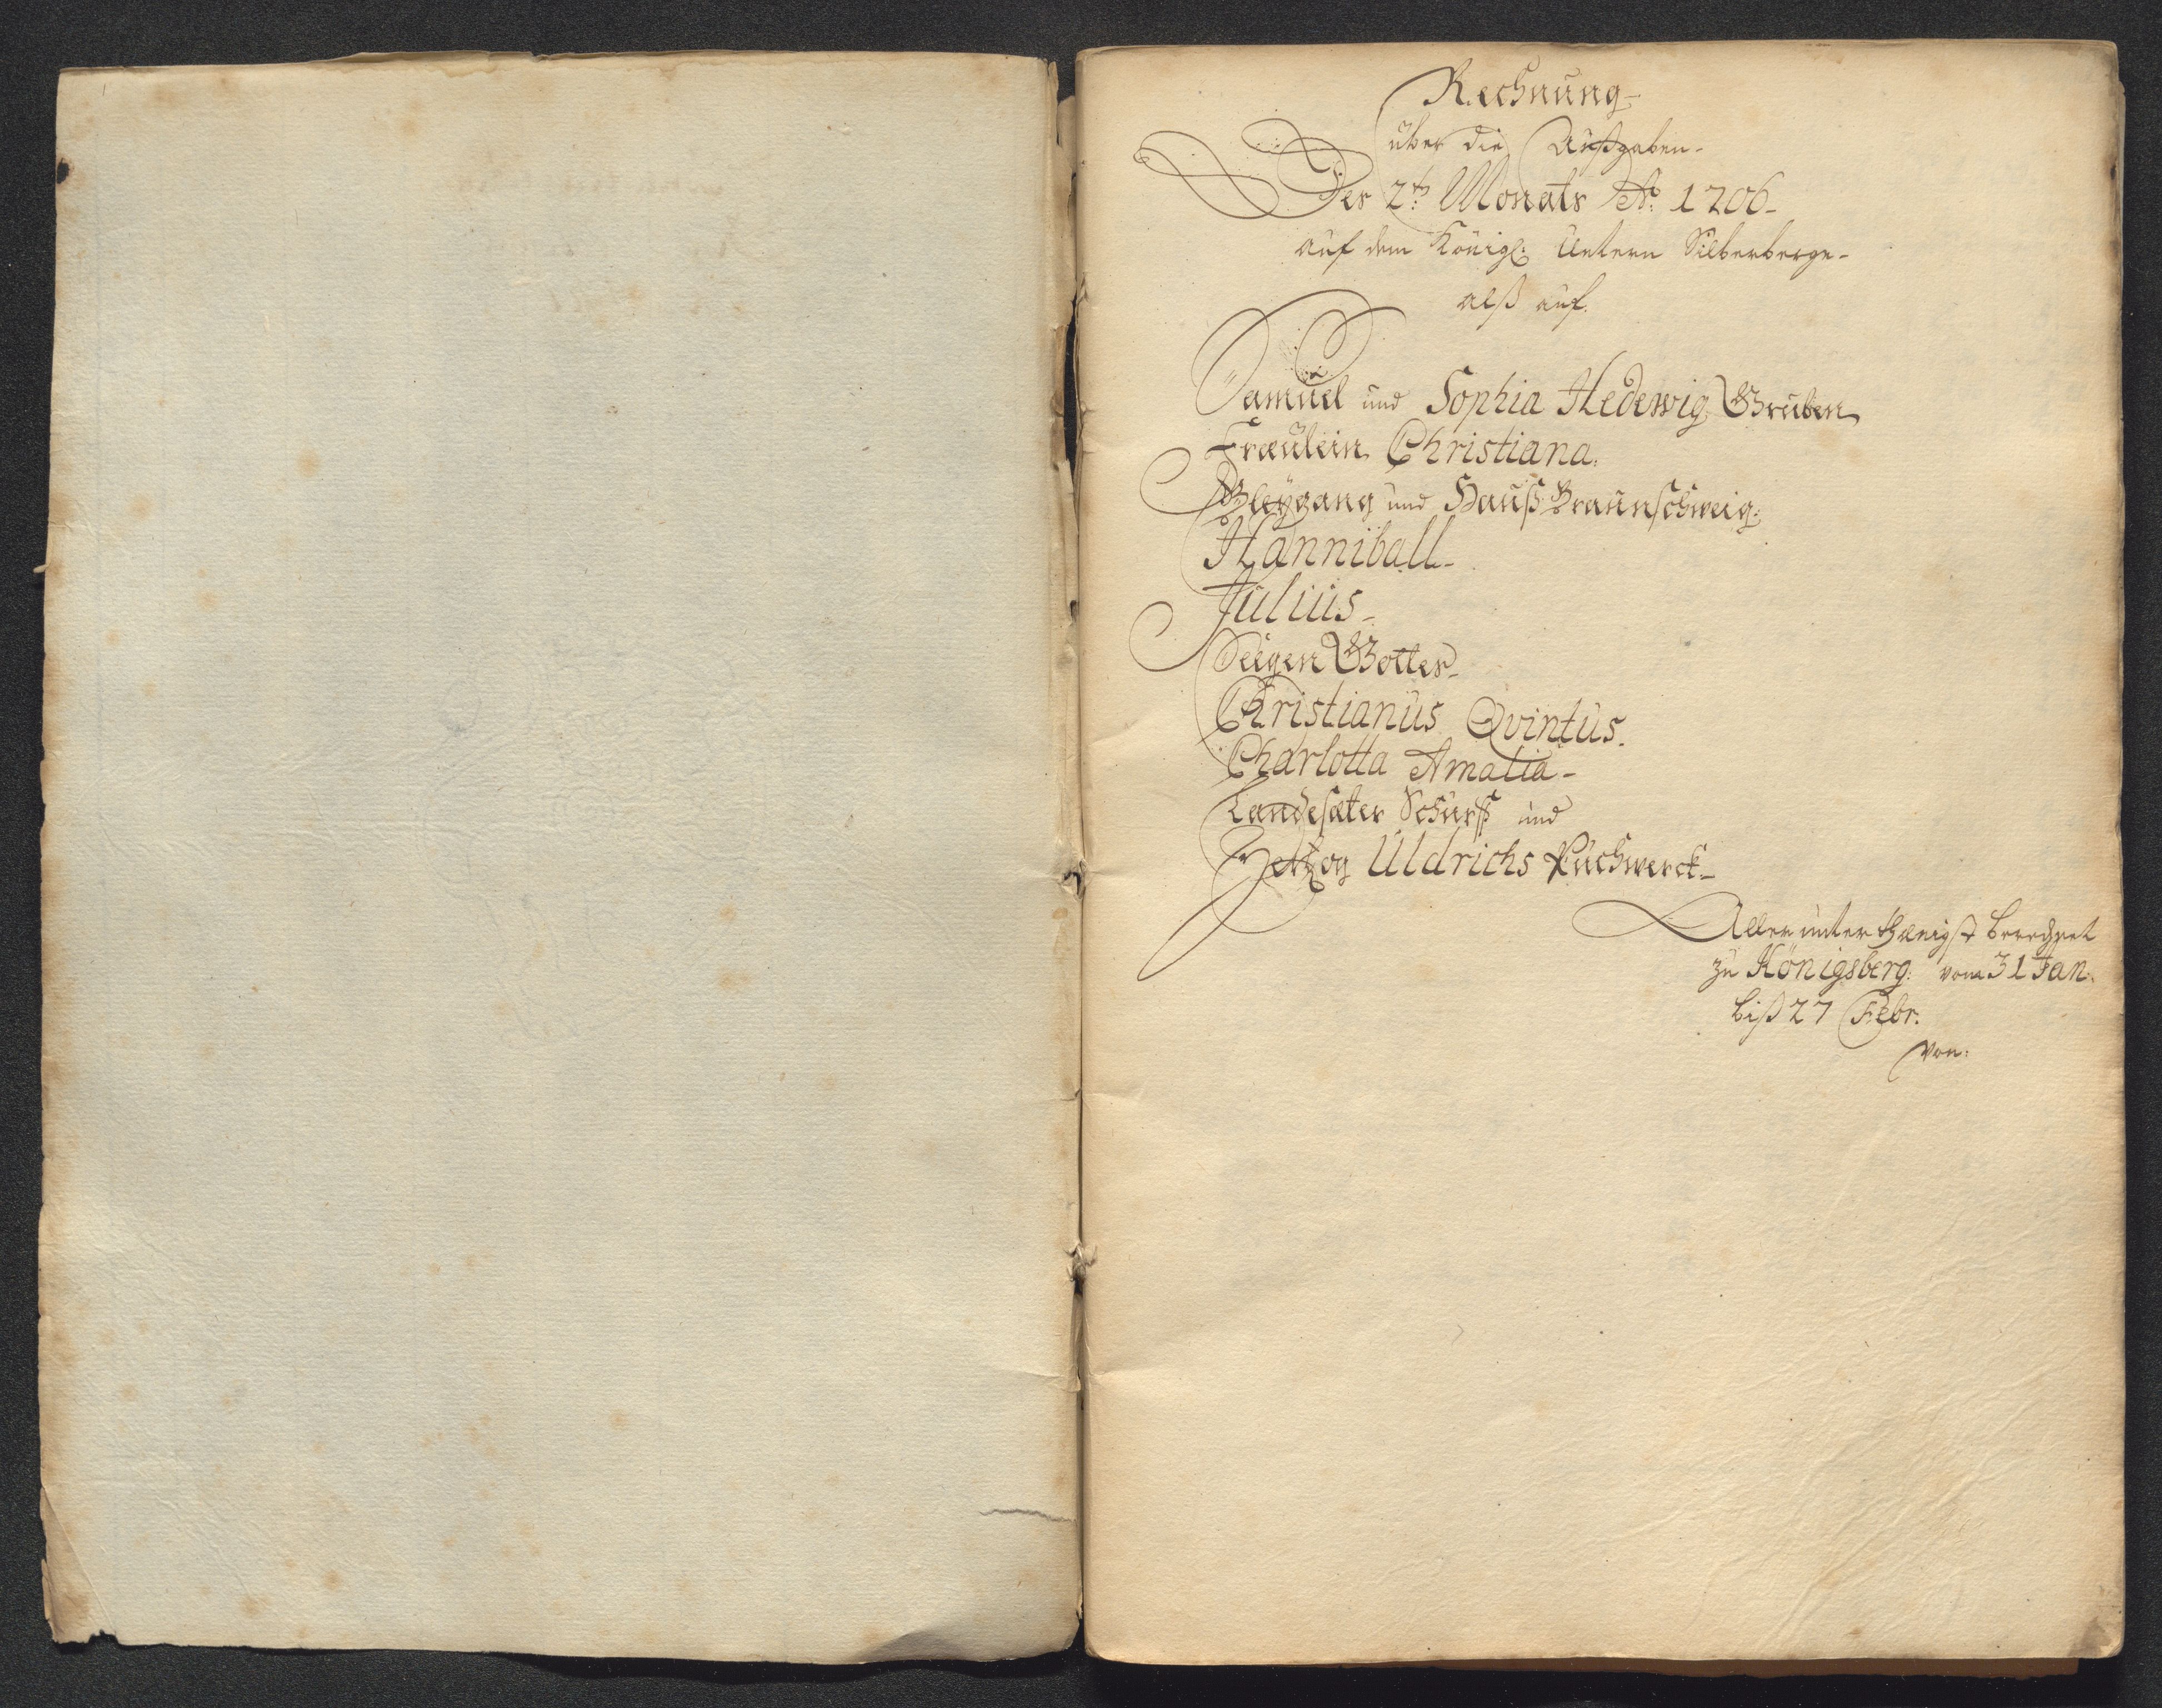 Rechnung
über die Außgaben
Des 2t. Monats Ao: 1706
auf dem Königl: Untern Silberberge
alß auf
Samuel und Sophia Hedewig Gruben
Fræulein Christiana.
Bleygang und Hauß Braunschweig:
Hanniball
Julius
Seegen Gottes
Christianus Qvintus.
Charlotta Amalia
Landesæter Schurff und
Hertzog Uldrichs Puchwerck
Allerunterthænigst berechnet
zu Königsberg: vom 31 Jan:
biß 27 Febr:
von: